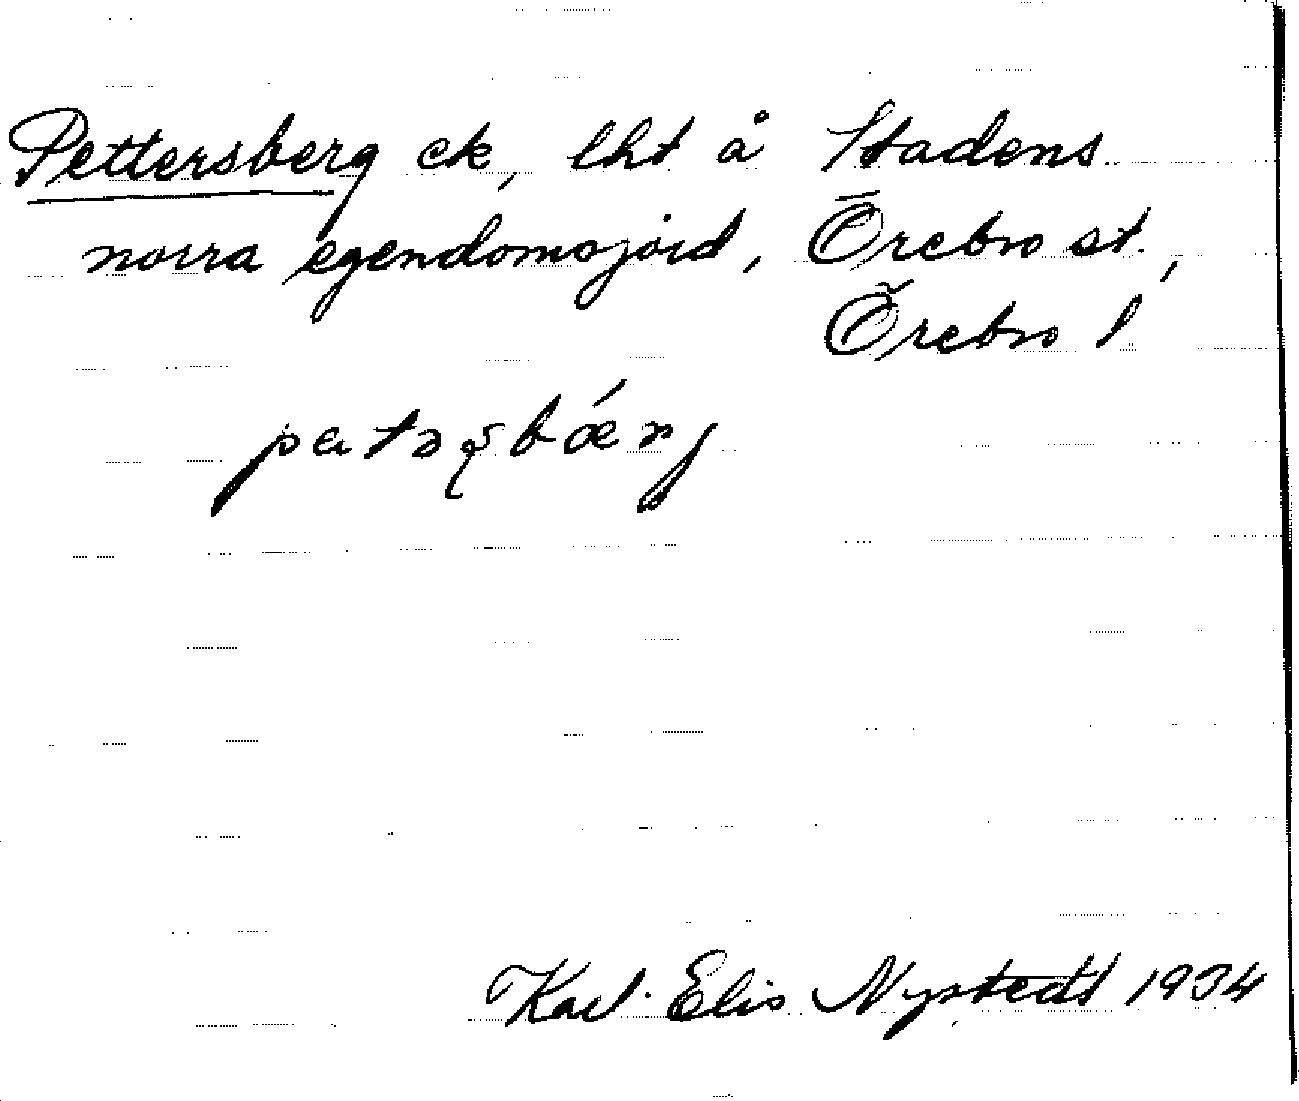 Pettersberg ek, lht å Stadens
norra egendomsjord, Örebro st.,
Örebro l
Karl-Elis Nystedt 1934